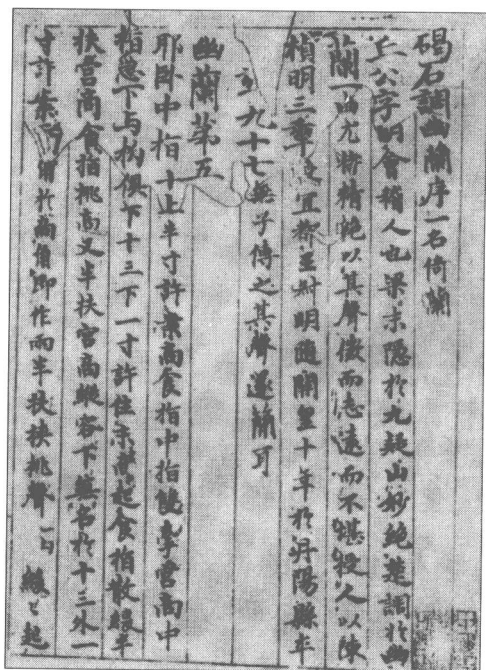 碣石調幽蘭序一名倚蘭
丘公字明會稽人也梁末隱於九疑山妙絕楚調於幽
蘭一曲尤特精絕以其聲微而志遠而不堪授人以陳
禎明三年授宜都王叔明隨開皇十年於丹陽縣卒
年九十七無子傳之其聲遂簡耳
幽蘭第五
耶臥中指十上半寸許案商食指中指雙牽宮商中
指急下与拘俱下十三下一寸許住末商起食指散緩半
扶宮商食指挑商又半扶宮商縱容下無名於十三外一
寸許案商角於商角即作兩半扶挾挑聲一句 緩〻起